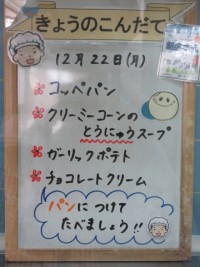 きょうのこんだて
12月22日(月)
コッペパン
クリーミーコーンの
とうにゅうスープ
ガーリックポテト
チョコレートクリーム
パンにつけて
たべましょう!!